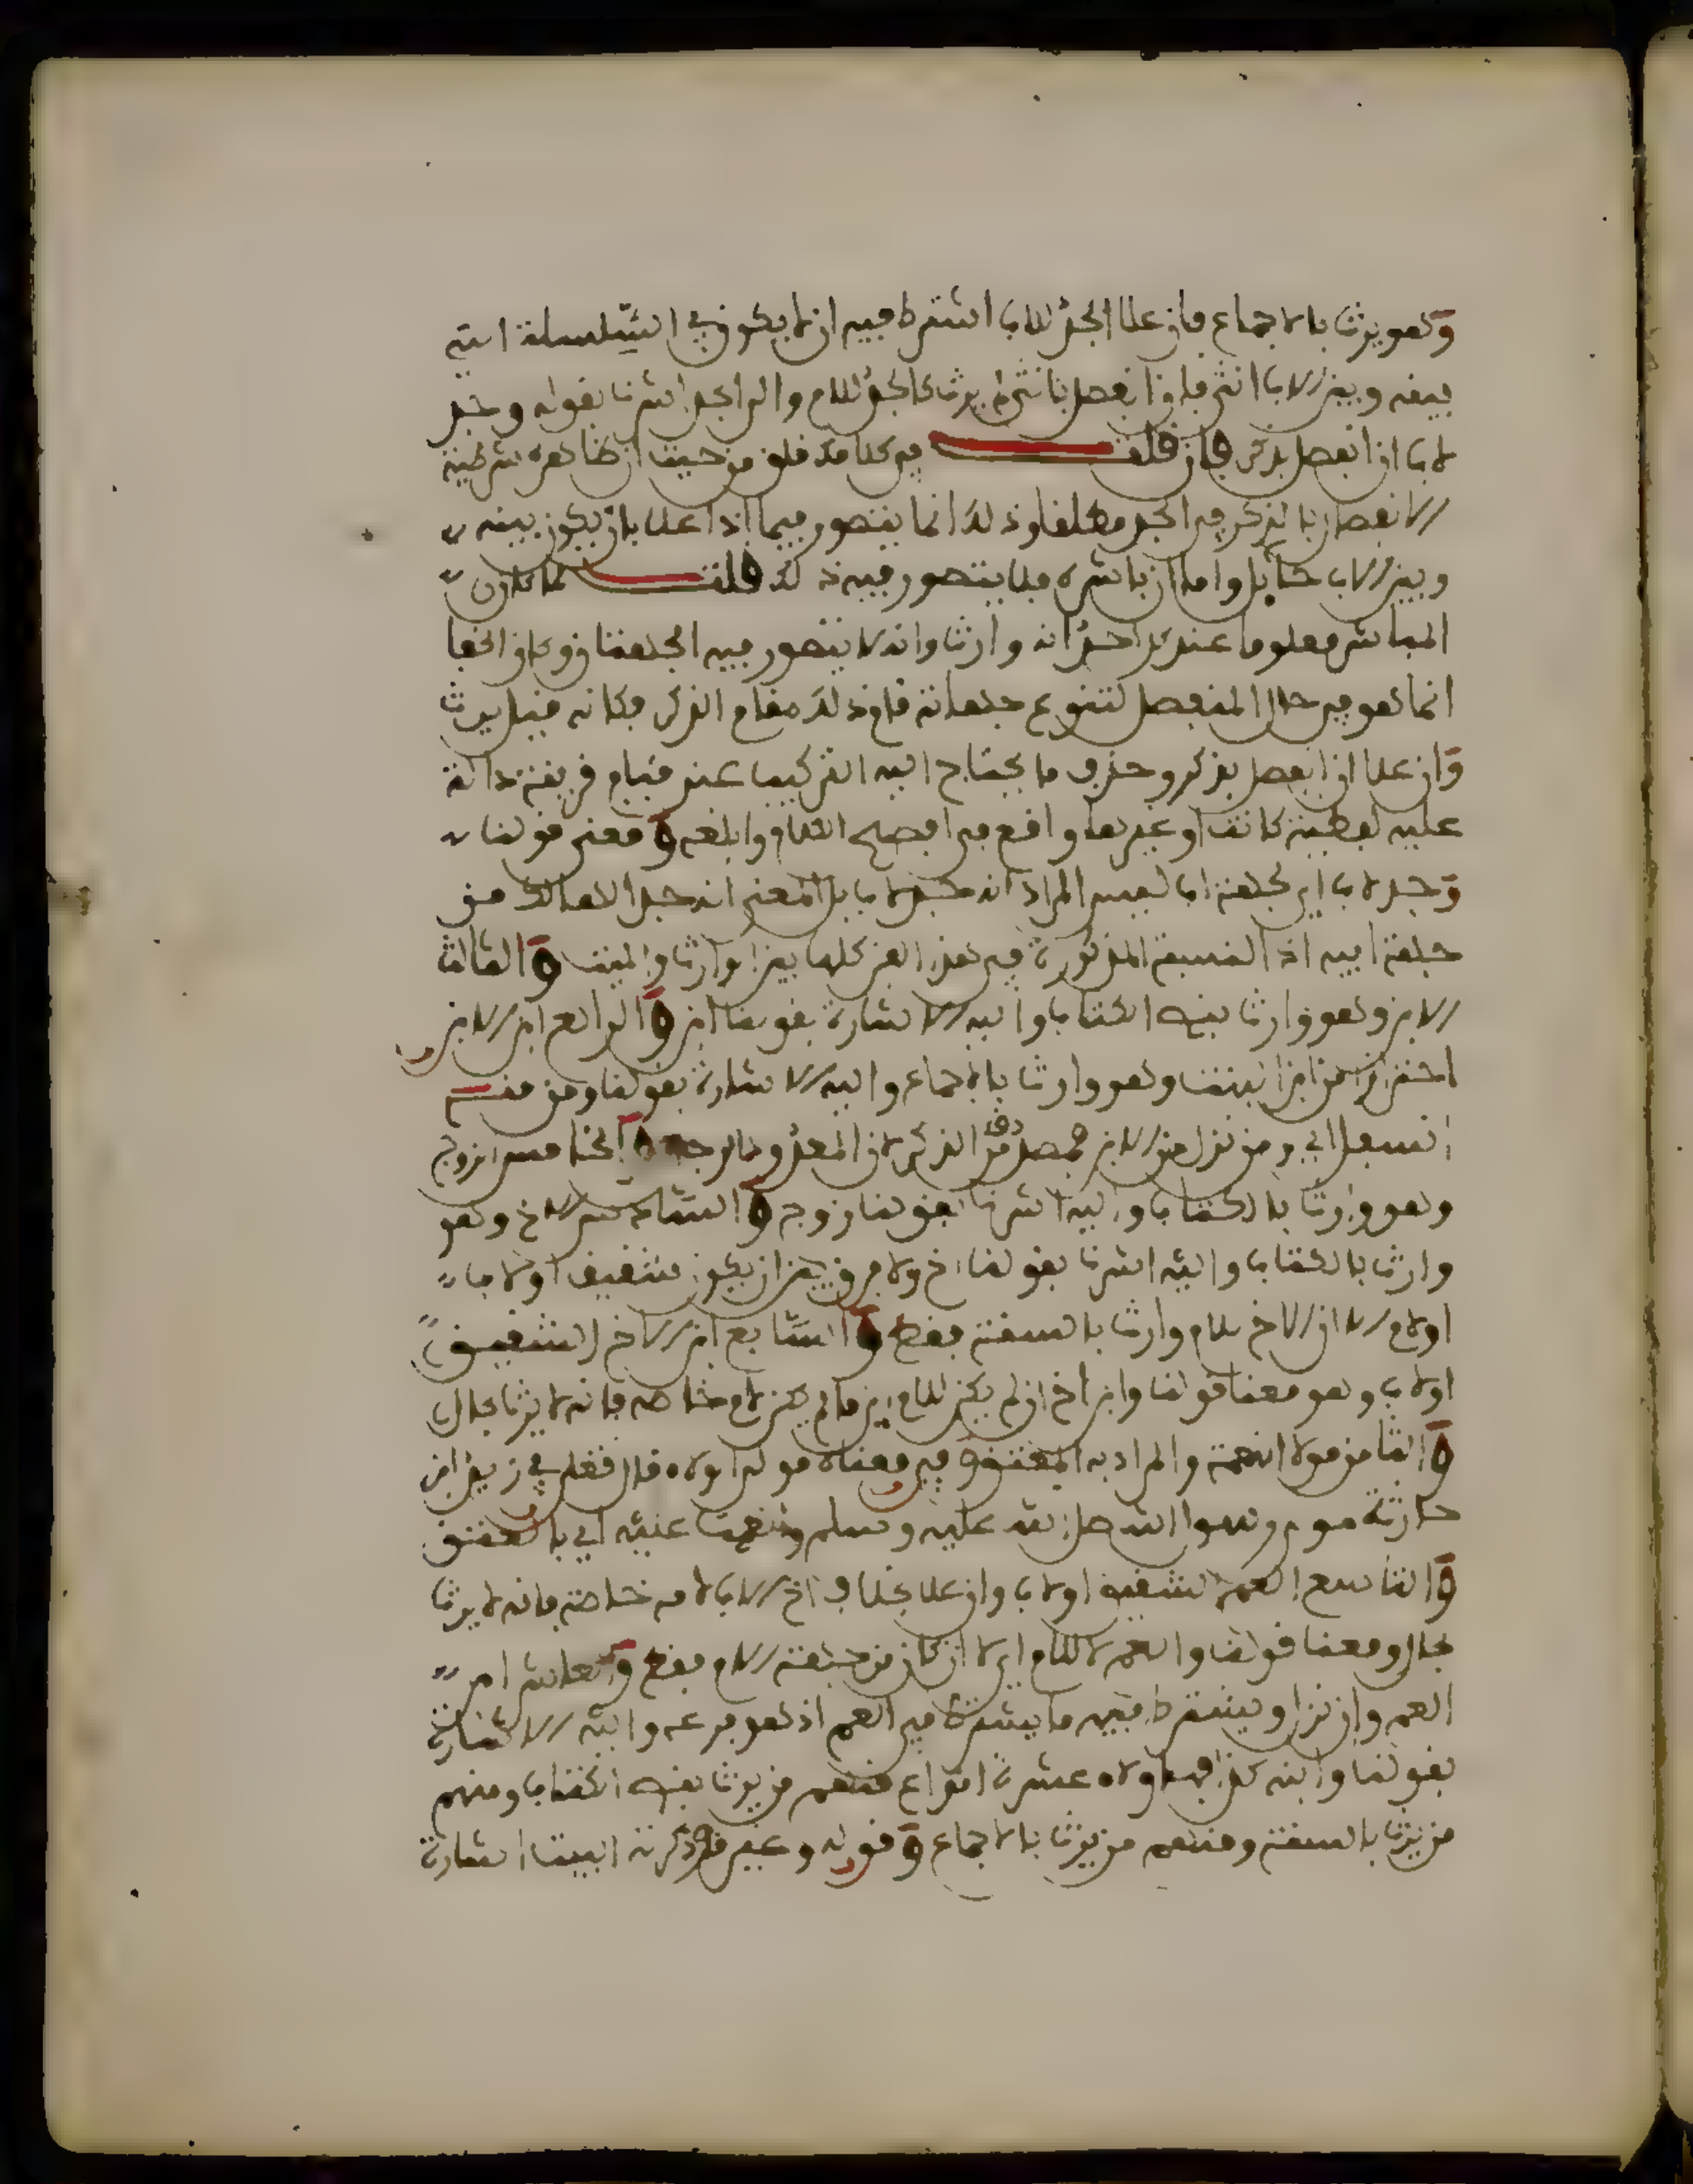 وهو يرث بالاجماع فان علا الجد للاب اشترط فيه ان لا يكون في السلسلة التي
بينه وبين الاب انثى فاذا انفصل بانثى لم يرث كالجد للام والى الجد اشرنا بقوله وجد
لاب ان انفصل بذكر فان قلت في كلامك قلق من حيث ان ظاهره شرطية
الانفصال بالذكر في الجد مطلقا وذلك انما يتصور فيما اذا علا بان يكون بينه
وبين الاب حائل واما ان باشره فلا يتصور فيه ذلك قلت لما كان
المباشر معلوما عند كل احد انه وارث وانه لا يتصور فيه الجهتان وكان الخفا
انما هو في حال المنفصل لتنوع جهاته قام ذلك مقام الذكر فكانه قيل يرث
وان علا ان انفصل بذكر وحذف ما يحتاج اليه التركيب عند قيام قرينة دالة
عليه لفظية كانت او غيرها واقع في افصح الكلام وابلغه ومعنى قولنا
وجد لاب اي لجهة اب ليس المراد انه جد لاب بل المعنى انه جد الهالك من
جهة ابيه اذ النسبة المذكورة في هذا الفن كلها بين الوارث والميت والثالث
الابن وهو وارث بنص الكتاب واليه الاشارة بقولنا ابن والرابع ابن الابن
احترازا من ابن البنت وهو وارث بالاجماع واليه الاشارة بقولنا ومن منه
انسفل اي ومن نزل من الابن فحصل قدر الذكر لان المعدود الخامس الزوج
وهو وارث بالكتاب واليه اشرنا بقولنا زوج والسادس الاخ وهو
وارث بالكتاب واليه اشرنا بقولنا اخ ولا فرق بين ان يكون شقيقا او لاب
او لام الا ان الاخ للام وارث بالسنة فقط والسابع ابن الاخ الشقيق
او لاب وهو معنا قولنا وابن اخ ان لم يكن للام اي ما لم يكن لام خاصة فانه لا يرث بحال
والثامن مولا النعمة والمراد به المعتق وفي معناه مولى الولاء قال تعلى في زيد ابن
حارثة مولى رسول الله صلى الله عليه وسلم وانعمت عليه اي بالعتق
والتاسع العم الشقيق او لاب وان علا بخلاف اخ الاب لامه خاصة فانه لا يرث
بحال ومعنا قولنا والعم لا للام اي لا ان كان من جهة الام فقط والعاشر ابن
العم وان نزل ويشترط فيه ما يشترط في العم اذ هو فرعه واليه الاشارة
بقولنا وابنه كذا فهاولاء عشرة انواع فمنهم من يرث بنص الكتاب ومنهم
من يرث بالسنة ومنهم من يرث بالاجماع وقوله وغير ما ذكرته البيت اشارة